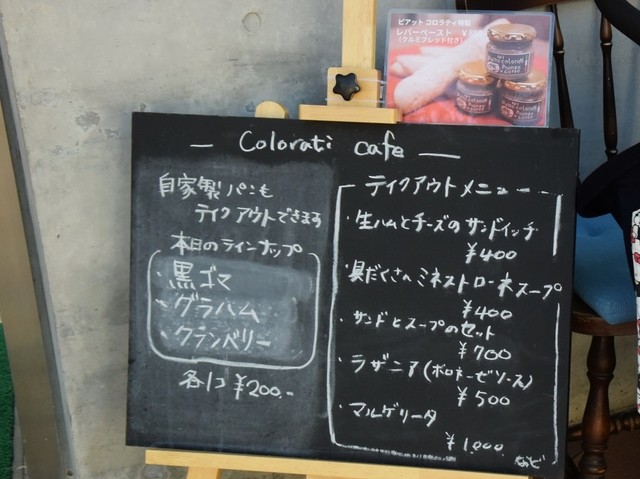 ピアット コロラティ特製
レバーペースト
(クルミブレッド付き)
— Colorati cafe —
自家製パンも
テイクアウトできます
本日のラインナップ
・黒ゴマ
・グラハム
・クランベリー
各1コ ¥200.-
テイクアウトメニュー
・生ハムとチーズのサンドイッチ
¥400
・具だくさんミネストローネスープ
¥400
・サンドとスープのセット
¥700
・ラザニア(ボロネーゼソース)
¥500
・マルゲリータ
¥1,000
など